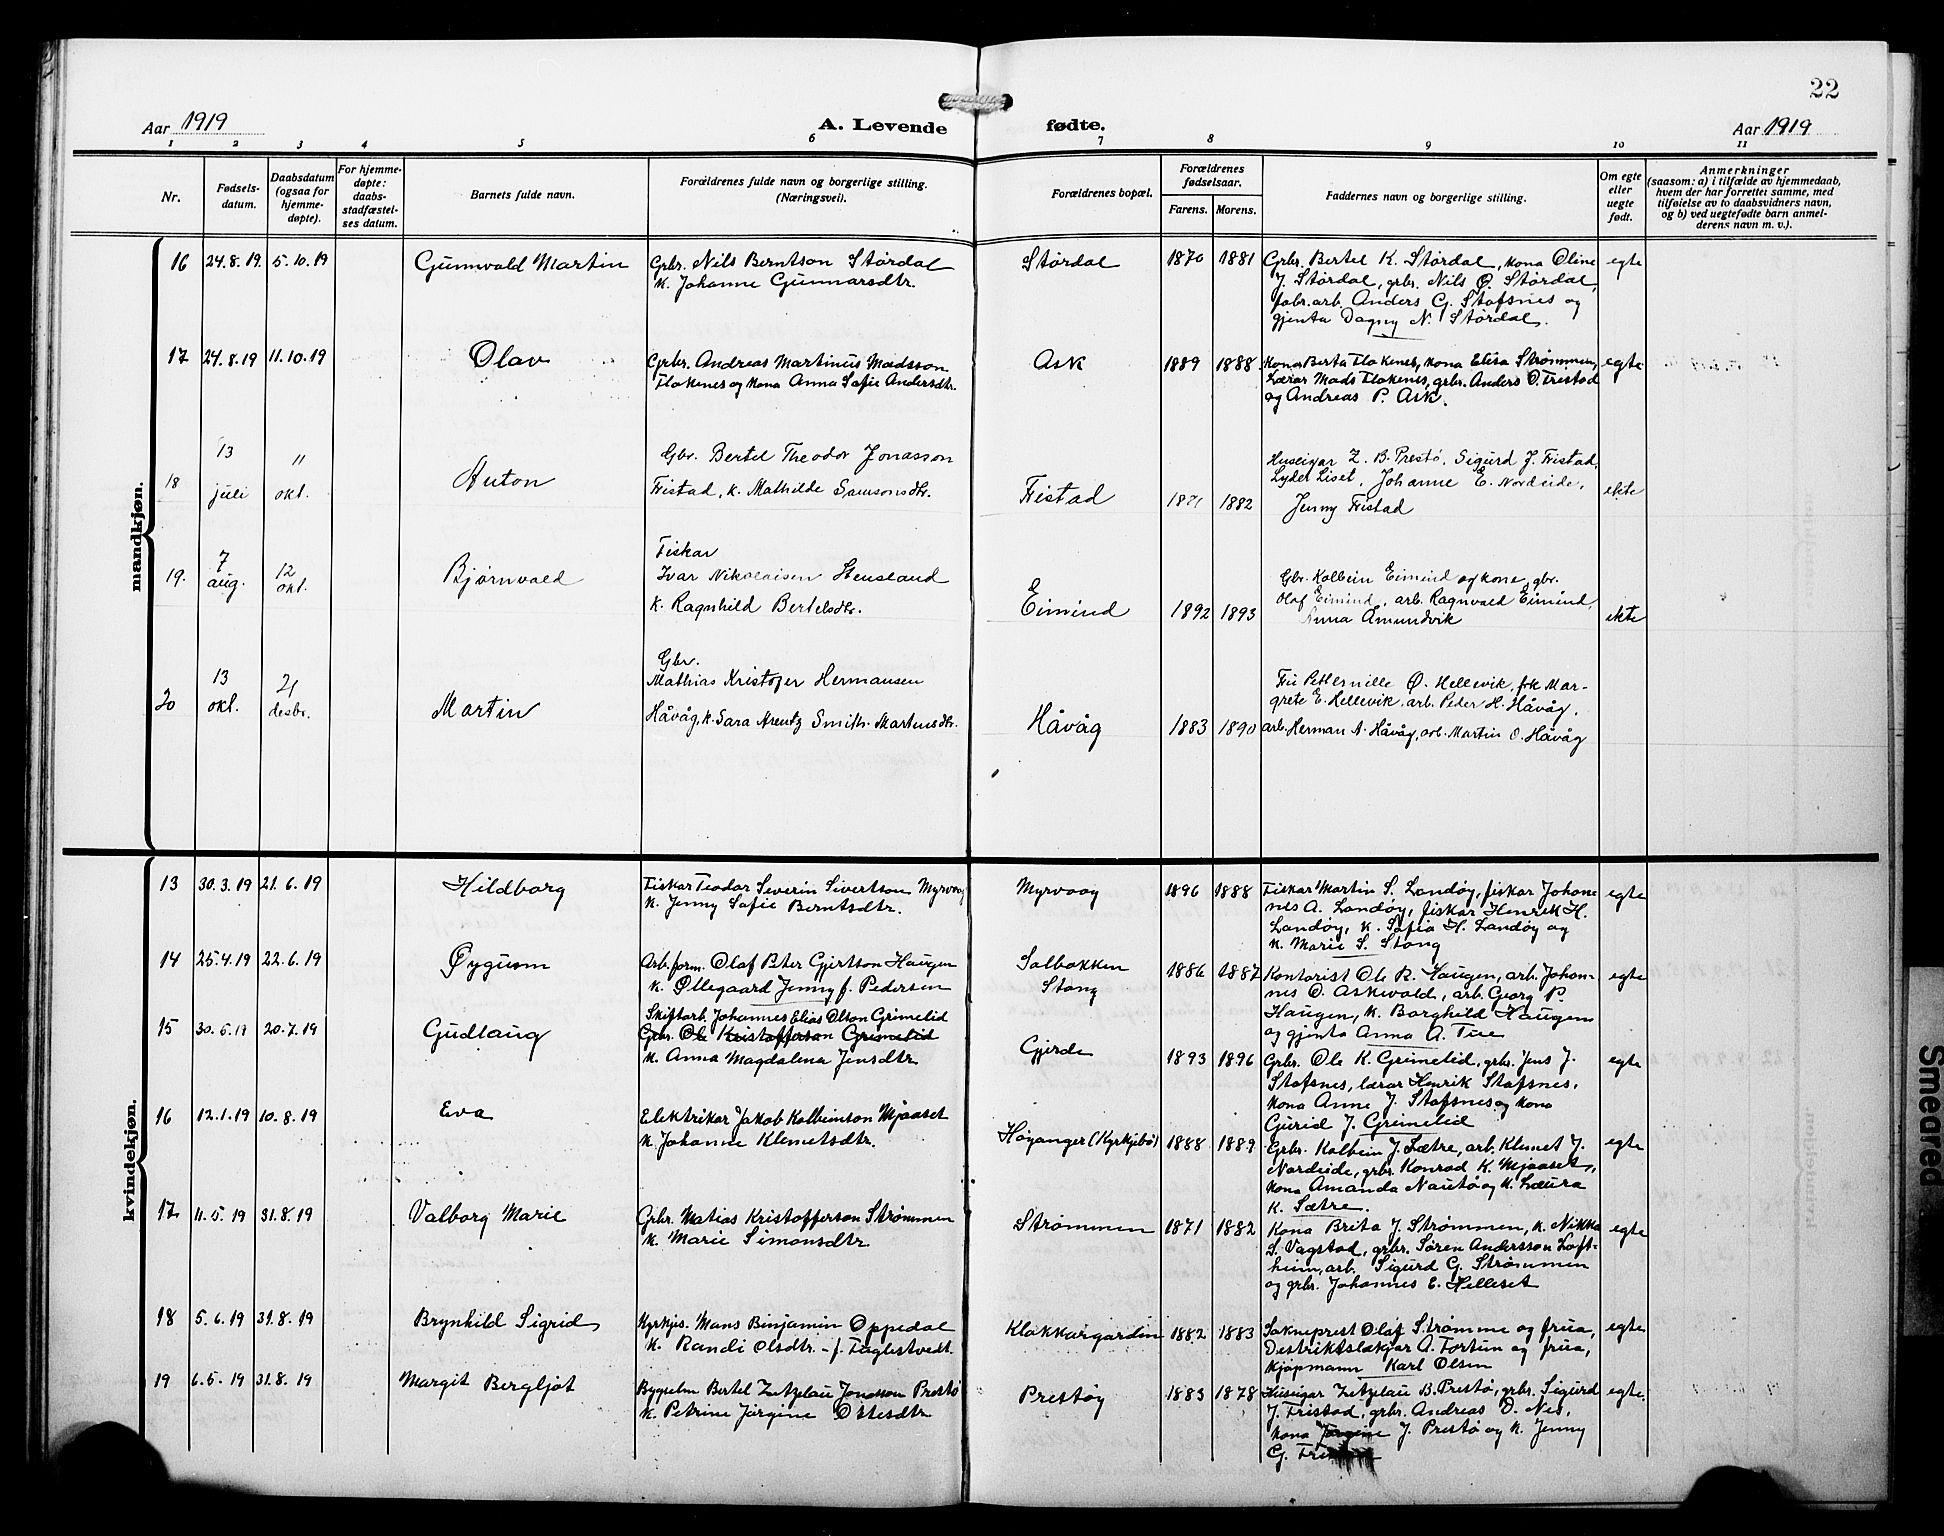 22
Aar 1919
A. Levende fødte.
Aar 1919
1 2 3 4 5 6 7 8 9 10 11
Nr.
Fødsels-
datum.
Daabsdatum
(ogsaa for
hjemme-
døpte).
For hjemme-
døpte:
daabs-
stadfæstel-
ses datum.
Barnets fulde navn.
Forældrenes fulde navn og borgerlige stilling.
(Næringsvei).
Forældrenes bopæl.
Forældrenes
fødselsaar.
Farens. Morens.
Faddernes navn og borgerlige stilling.
Om egte
eller
uegte
født.
Anmerkninger
(saasom: a) i tilfælde av hjemmedaab,
hvem der har forrettet samme, med
tilføielse av to daabsvidners navn,
og b) ved uegtefødte barn anmel-
derens navn m. v.).
mandkjøn.
16 24.8.19. 5.10.19 Gunnvald Martin
Grbr. Nils Berntson Størdal
k. Johanne Gunnarsdtr.
Størdal 1870 1881
Grbr. Bertel K. Størdal, kona Oline
J. Størdal, grbr. Nils O. Størdal,
fabr. arb. Anders G. Stafsnes og
gjenta Dagny N. Størdal.
egte
17 24.8.19 11.10.19 Olav
Grbr. Andreas Martinus Madsson
Flokenes og kona Anna Sofie Andersdtr.
Ask 1889 1888
Kona Berta Flokenes, kona Elisa Strømmen,
Lærar Mads Flokenes, grbr. Anders O. Fristad
og Andreas P. Ask.
egte
18 13 juli 11 okt. Anton
Gbr. Bertel Theodor Jonasson
Fristad, k. Mathilde Samsonsdtr.
Fristad 1882
Huseigar Z. B. Prestø, Sigurd J. Fristad,
Lyder Liset, Johanne E. Nordeide,
Jenny Fristad
ekte
19. 7 aug. 12 okt. Bjørnvald
Fiskar
Ivar Nikolaisen Stensland
k. Ragnhild Bertelsdtr.
Eimind 1892 1893
Gbr. Kolbein Eimind og kone, gbr.
Olaf Eimind, arb. Ragnvald Eimind,
Anna Amundvik
ekte
20 13 okt. 21 desbr. Martin
Gbr.
Mathias Kristofer Hermansen
Håvåg, k. Sara Arentz Smith Martinsdtr.
Håvåg 1883 1890
Fru Pethernille Ø. Hellevik, frk Mar-
grete E. Hellevik, arb. Peder H. Håvåg,
arb. Herman A. Håvåg, arb. Martin O. Håvåg
kvindekjøn.
13 30.3.19 21.6.19 Hildborg
Fiskar Teodor Severin Sivertson Myrvaag
k. Jenny Sofie Berntsdtr.
Myrvaag 1896 1888
Fiskar Martin S. Landøy, fiskar Johan-
nes A. Landøy, fiskar Henrik H.
Landøy, k. Sofia H. Landøy og
k. Marie S. Stang
egte
14 25.4.19 22.6.19 Øygunn
Arb. form. Olaf Peter Gjertson Haugen
k. Øllegaard Jenny f. Pedersen
Solbakken
Stang
1886 1887
Kontorist Ole R. Haugen, arb. Johan-
nes O. Askvold, arb. Georg P.
Haugen, k. Borghild Haugen
og gjenta Anna A. Tue
egte
15 30.5.19 20.7.19 Gudlaug
Skiftarb. Johannes Elias Olson Grimelid
Grbr. Ole Kristofferson Grimelid
k. Anna Magdalena Jensdtr
Gjerde 1893 1896
Grbr. Ole K. Grimelid, grbr. Jens J.
Stafsnes, lærar Henrik Stafsnes,
kona Anne J. Stafsnes og kona
Gurid J. Grimelid
egte
16 12.1.19 10.8.19 Eva
Elektrikar Jakob Kolbeinson Mjaaset
k. Johanne Klemetsdtr.
Høyanger (Kyrkjebø) 1888 1889
Grbr. Kolbein J. Sætre, arb. Klemet J.
Nordeide, grbr. Konrad K. Mjaaset,
kona Amanda Nautø og k. Laura
K. Sætre.
egte
17 11.5.19 31.8.19 Valborg Marie
Grbr. Matias Kristofferson Strømmen
k. Marie Simonsdtr
Strømmen 1871 1882
Kona Brita J. Strømmen, k. Nikka
S. Vagstad, grbr. Søren Andersson Loft-
heim, arb. Sigurd G. Strømmen
og grbr. Johannes E. Helleset
egte
18 5.6.19 31.8.19 Brynhild Sigrid
Kyrkjes. Mons Binjamin Oppedal
k. Randi Olsdtr. - f. Fuglestvedt.
Klokkargarden 1882 1883
Sokneprest Olaf Strømme og frua,
Destriktslækjar A. Fortun og frua,
kjøpmann Karl Olsen
egte
19 6.5.19 31.8.19 Margit Bergljot
Byggselm Bertel Zetzelau Jonasson Prestø
k. Petrine Jørgine Ottesdtr
Prestøy 1883 1878
Huseigar Zetzelau B. Prestø, grbr. Sigurd
J. Fristad, grbr. Andreas O. Nes,
kona Jørgine J. Prestø og k. Jenny
G. Fristad
egte.
Smeared